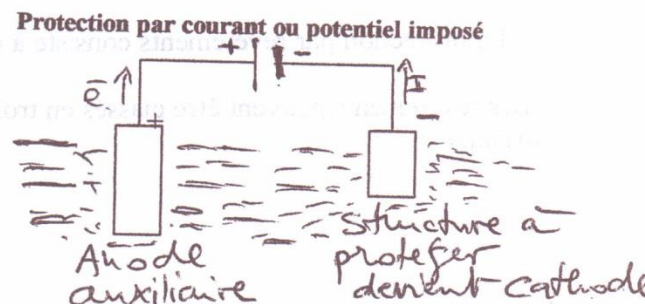 Protection par courant ou potentiel imposé
+ -
e̅ I
+ -
Anode
auxiliaire
structure à
protéger
devient cathode